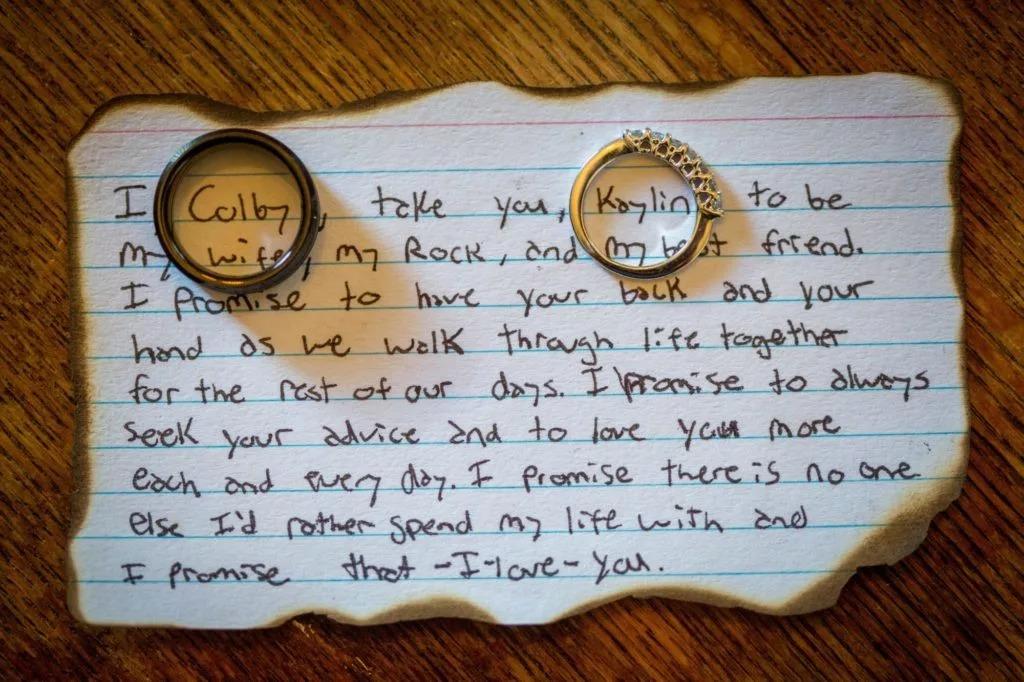 I Colby, take you, Kaylin, to be
my wife, my Rock, and my best friend.
I promise to have your back and your
hand as we walk through life together
for the rest of our days. I promise to always
seek your advice and to love you more
each and every day. I promise there is no one
else I'd rather spend my life with and
I promise that -I-love-you.